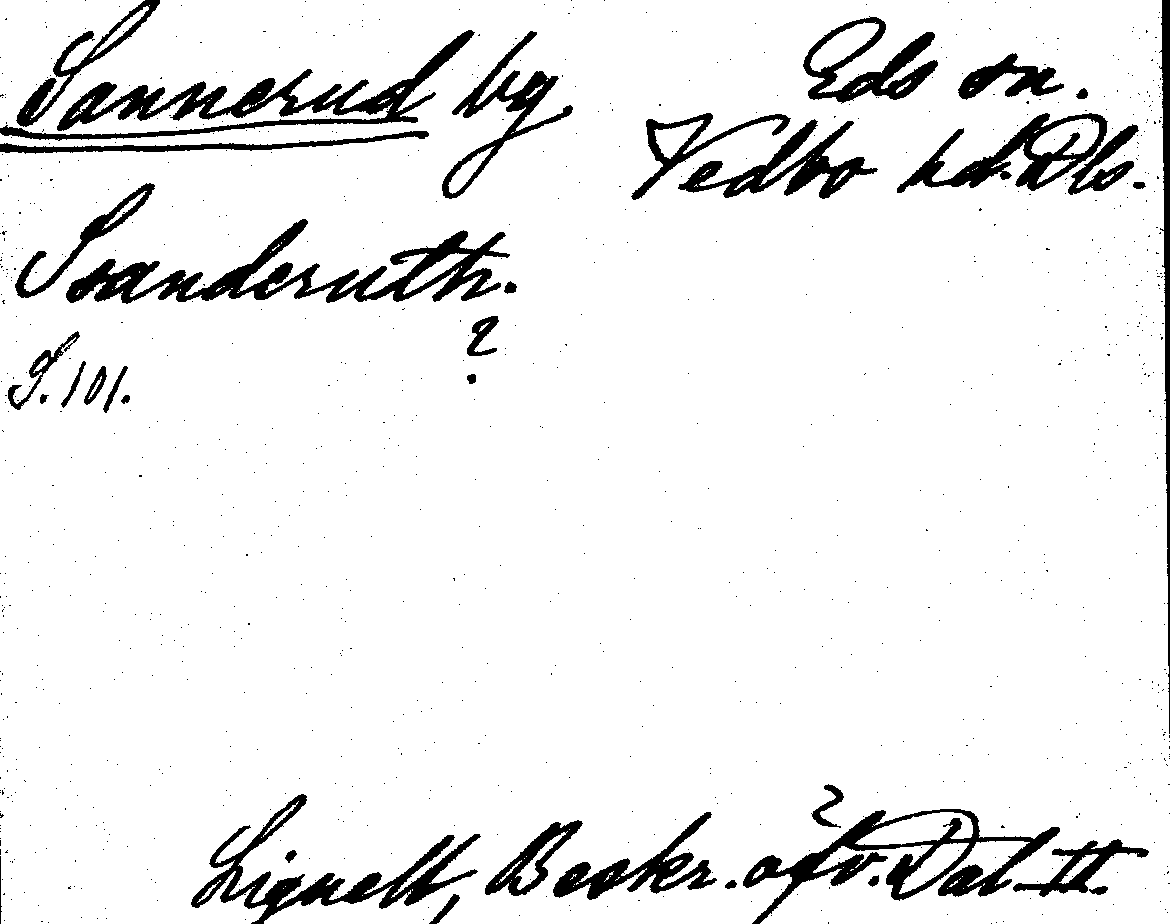 Sannerud by.
Eds sn.
Vedbo hd. Dls.
Ssanderuth.
?
S. 101.
Lignell, Beskr. öfv. Dal. II.